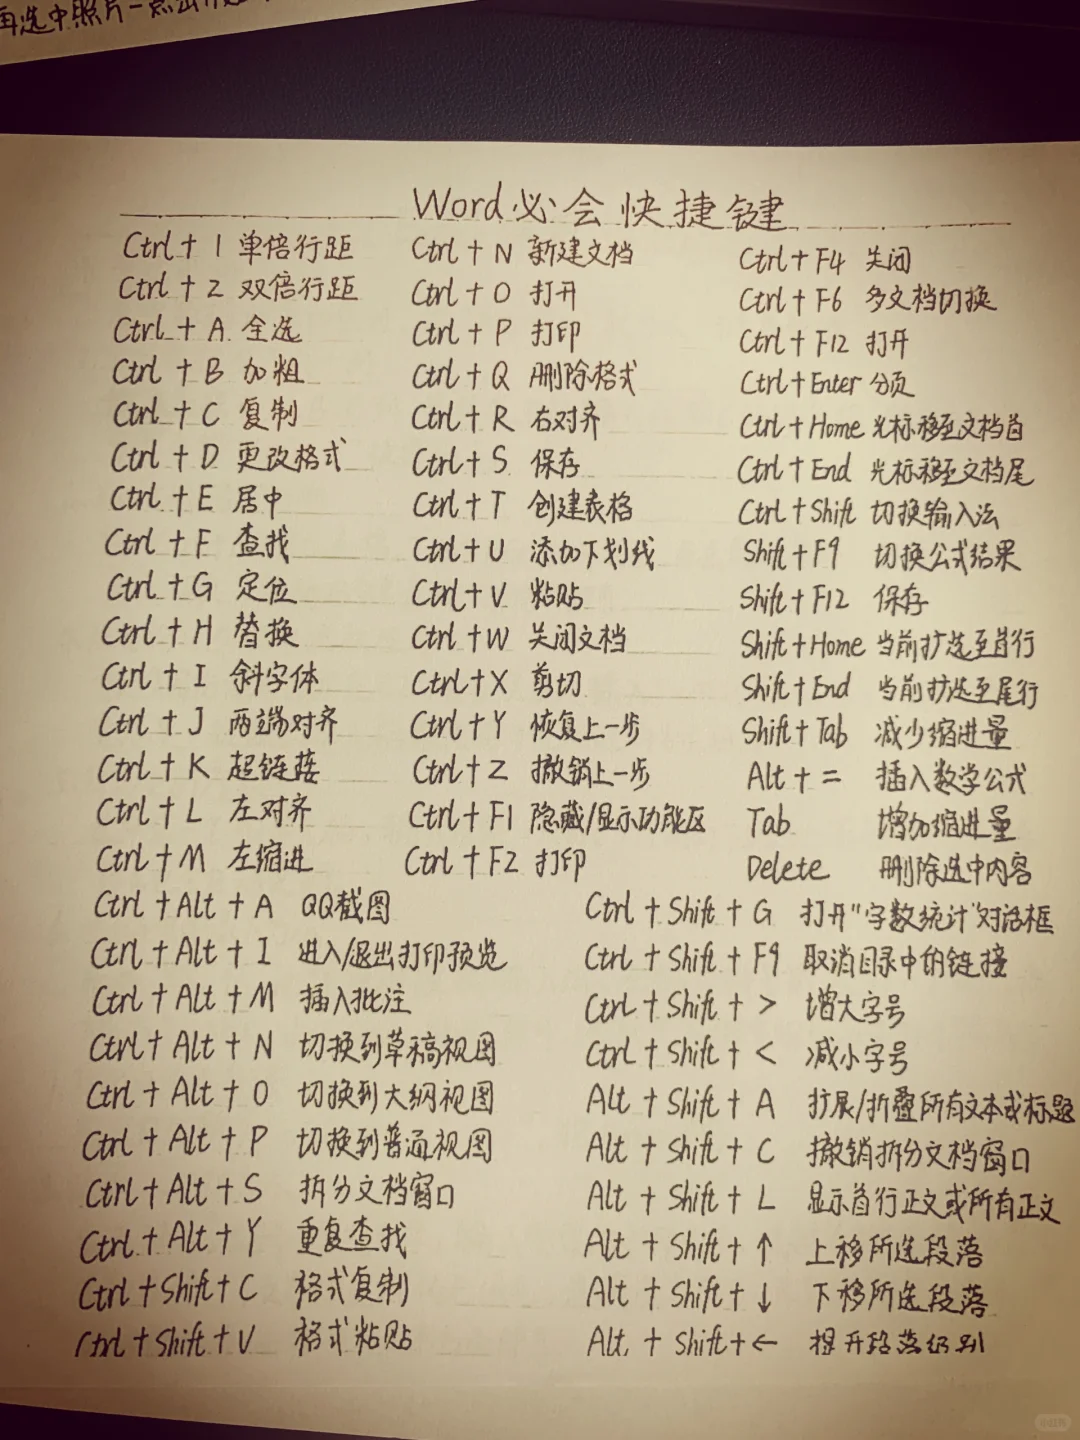 再选中照片一点击
Word必会快捷键
Ctrl + 1 单倍行距
Ctrl + 2 双倍行距
Ctrl + A 全选
Ctrl + B 加粗
Ctrl + C 复制
Ctrl + D 更改格式
Ctrl + E 居中
Ctrl + F 查找
Ctrl + G 定位
Ctrl + H 替换
Ctrl + I 斜字体
Ctrl + J 两端对齐
Ctrl + K 超链接
Ctrl + L 左对齐
Ctrl + M 左缩进
Ctrl + N 新建文档
Ctrl + O 打开
Ctrl + P 打印
Ctrl + Q 删除格式
Ctrl + R 右对齐
Ctrl + S 保存
Ctrl + T 创建表格
Ctrl + U 添加下划线
Ctrl + V 粘贴
Ctrl + W 关闭文档
Ctrl + X 剪切
Ctrl + Y 恢复上一步
Ctrl + Z 撤销上一步
Ctrl + F1 隐藏/显示功能区
Ctrl + F2 打印
Ctrl + F4 关闭
Ctrl + F6 多文档切换
Ctrl + F12 打开
Ctrl + Enter 分页
Ctrl + Home 光标移至文档首
Ctrl + End 光标移至文档尾
Ctrl + Shift 切换输入法
Shift + F9 切换公式结果
Shift + F12 保存
Shift + Home 当前扩选至首行
Shift + End 当前扩选至尾行
Shift + Tab 减少缩进量
Alt + = 插入数学公式
Tab 增加缩进量
Delete 删除选中内容
Ctrl + Alt + A QQ截图
Ctrl + Alt + I 进入/退出打印预览
Ctrl + Alt + M 插入批注
Ctrl + Alt + N 切换到草稿视图
Ctrl + Alt + O 切换到大纲视图
Ctrl + Alt + P 切换到普通视图
Ctrl + Alt + S 拆分文档窗口
Ctrl + Alt + Y 重复查找
Ctrl + Shift + C 格式复制
Ctrl + Shift + V 格式粘贴
Ctrl + Shift + G 打开"字数统计"对话框
Ctrl + Shift + F9 取消目录中的链接
Ctrl + Shift + > 增大字号
Ctrl + Shift + < 减小字号
Alt + Shift + A 扩展/折叠所有文本或标题
Alt + Shift + C 撤销拆分文档窗口
Alt + Shift + L 显示首行正文或所有正文
Alt + Shift + ↑ 上移所选段落
Alt + Shift + ↓ 下移所选段落
Alt + Shift + ← 提升段落级别